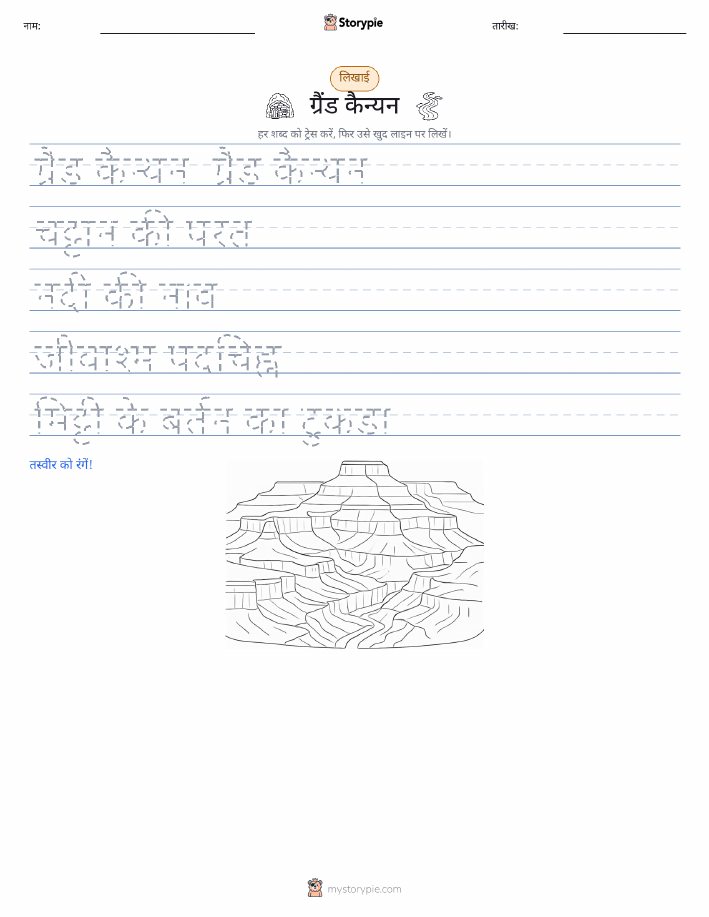 नाम:
Storypie
तारीख:
लिखाई
ग्रैंड कैन्यन
हर शब्द को ट्रेस करें, फिर उसे खुद लाइन पर लिखें।
ग्रैंड कैन्यन ग्रैंड कैन्यन
चट्टान की परत
नदी की नाव
जीवाश्म पदचिह्न
मिट्टी के बर्तन का टुकड़ा
तस्वीर को रंगें!
mystorypie.com